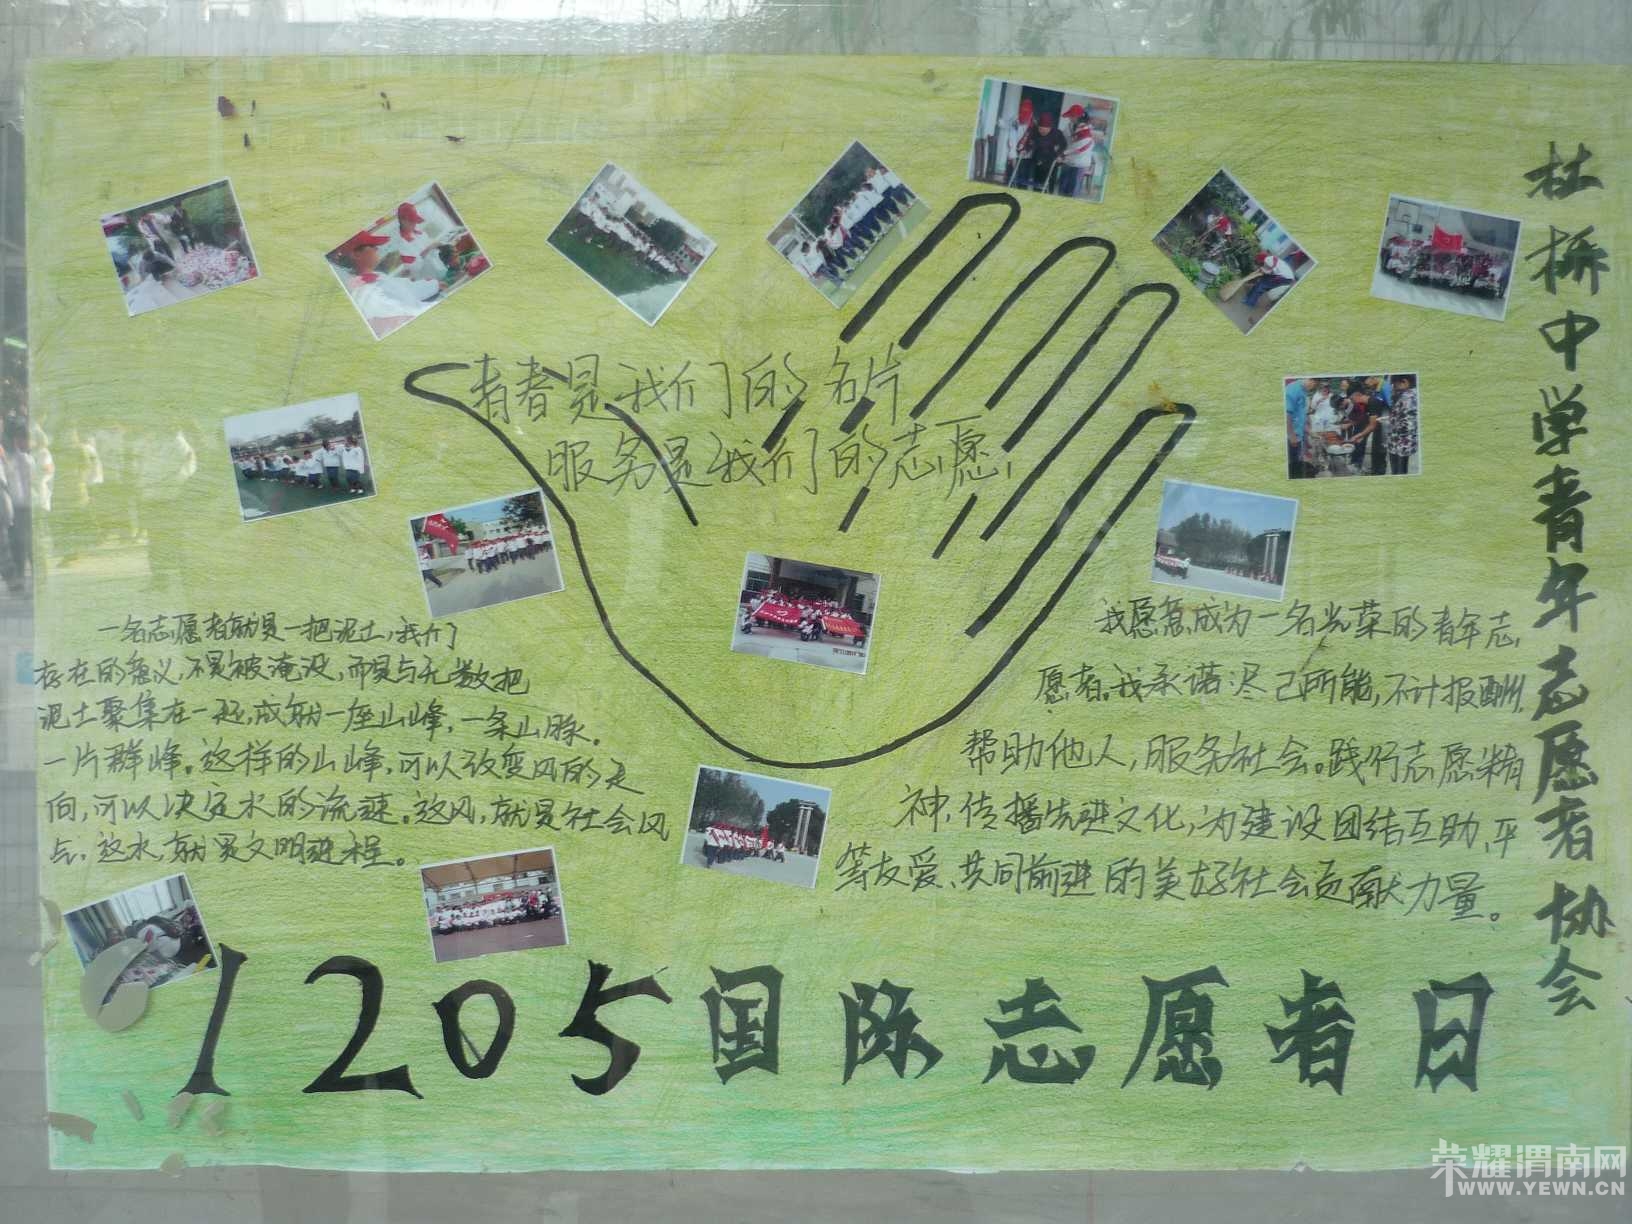 青春是我们的名片
服务是我们的志愿
杜桥中学青年志愿者协会
一名志愿者就是一把泥土,我们
存在的意义,不是被淹没,而是与无数把
泥土聚集在一起,成就一座山峰,一条山脉。
一片群峰。这样的山峰,可以改变风的走
向,可以决定水的流速。这风,就是社会风
气,这水,就是文明进程。
我愿意成为一名光荣的青年志
愿者。我承诺:尽己所能,不计报酬,
帮助他人,服务社会。践行志愿精
神,传播先进文化,为建设团结互助、平
等友爱、共同前进的美好社会贡献力量。
1205国际志愿者日
荣耀渭南网
WWW.YEWN.CN